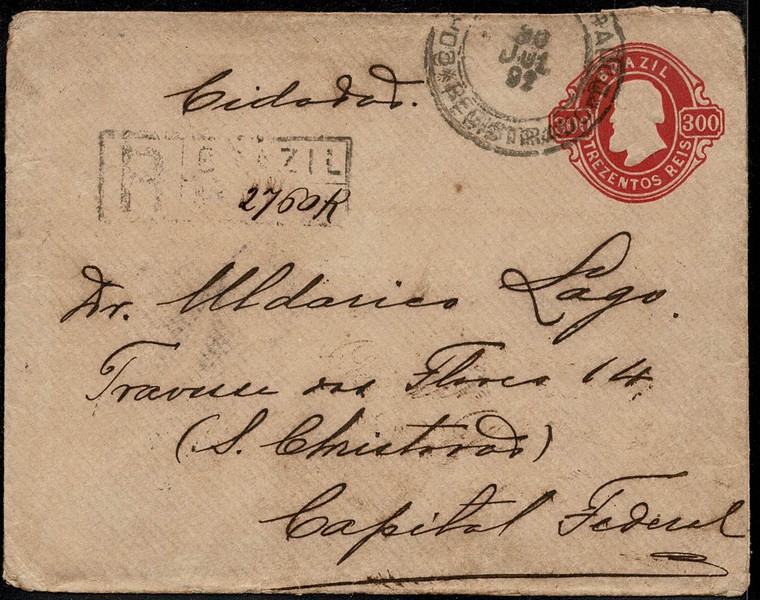 30
JUL
92
REGISTRADO
BRAZIL
300 300
TREZENTOS REIS
Cidadad.
R BRAZIL
2760R
Dr. Uldarico Lago.
Travessa das Flores 14
(S. Christovaõ)
Capital Federal